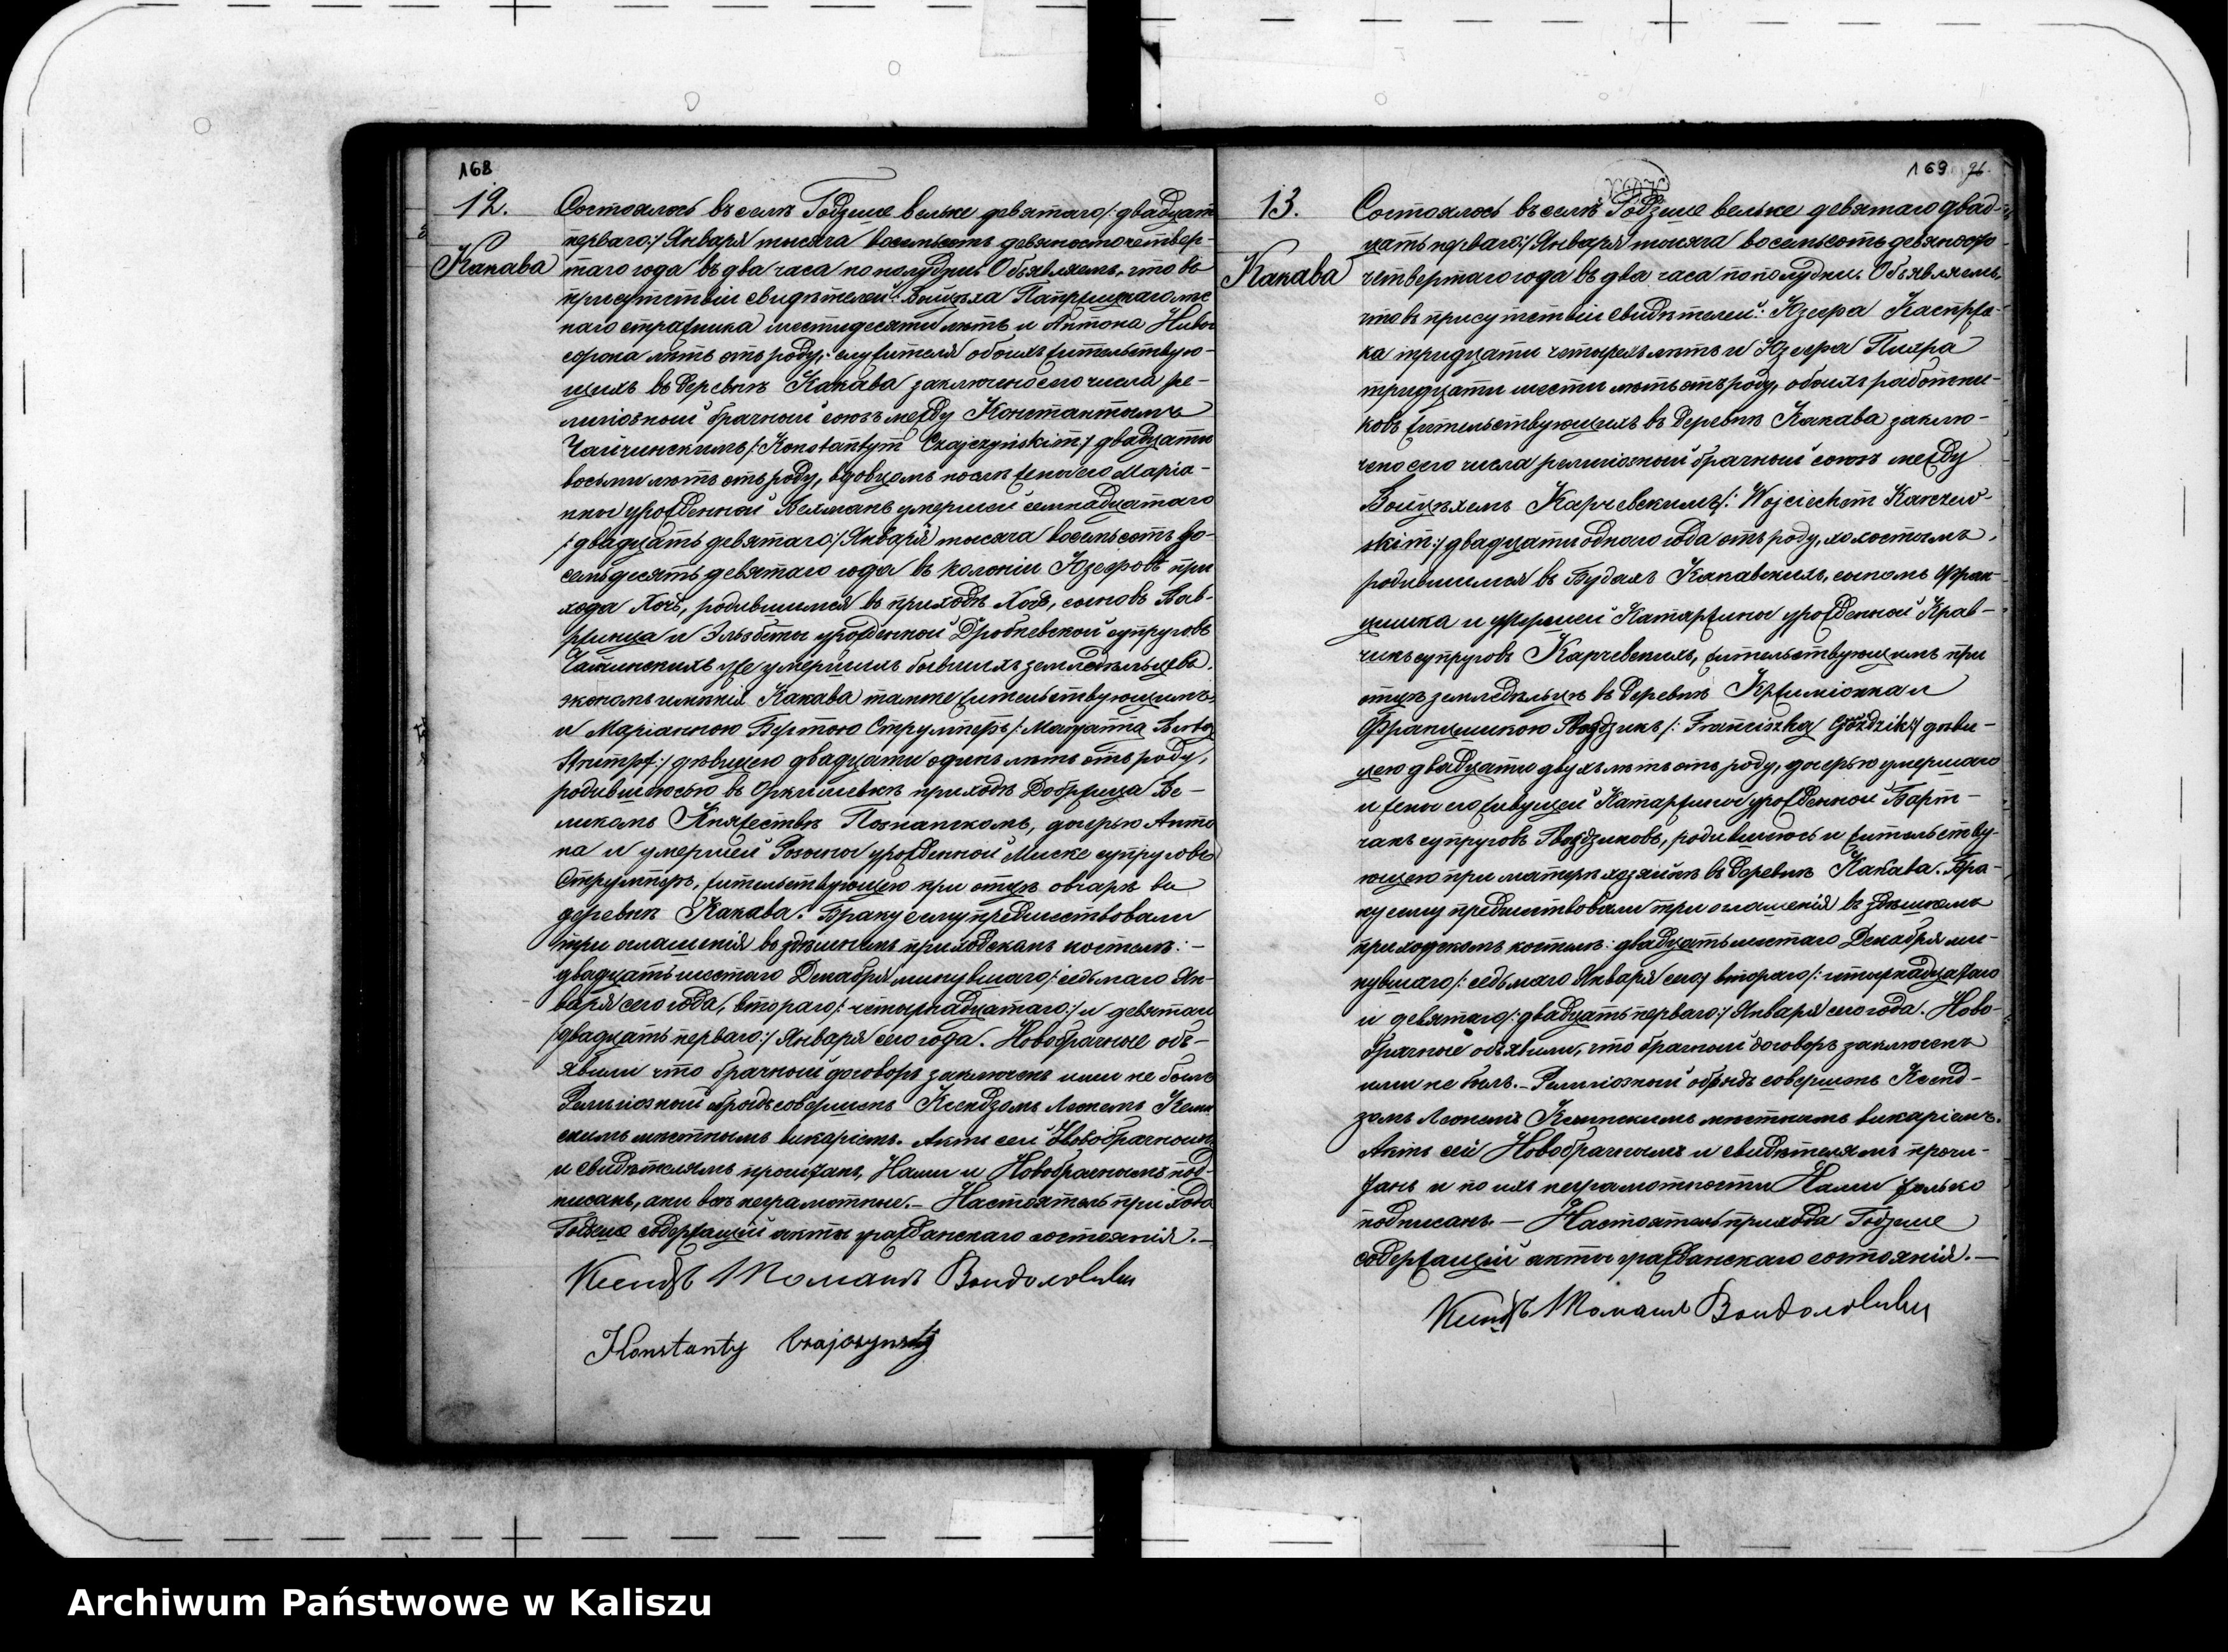 168
12.
Состоялось въ селѣ Годзеше вельке девятаго /: двадцать
перваго :/ Января тысяча восемьсотъ девяносто четвер-
Какава
таго года въ два часа по полудни. Объявляемъ, что въ
присутствіи свидѣтелей: Войцѣха
сорока лѣтъ отъ роду, обоихъ жительствую-
щихъ въ деревнѣ Какава заключено сего числа ре-
лигіозный брачный союзъ между Константымъ
Чайчинскимъ /: Konstantym Czajczyńskim :/ двадцати
восьми лѣтъ отъ роду, вдовцомъ послѣ жены его Маріа-
нны урожденной умершей семнадцатаго
/: двадцать девятаго :/ Января тысяча восемьсотъ во-
семьдесятъ девятаго года въ колоніи Юзефовъ при
хода родившимся въ приходѣ сыномъ Вав-
ржинца и Эльжбеты урожденной супруговъ
уже умершихъ бывшихъ земледѣльцевъ,
экономъ имѣнія Какава тамже жительствующимъ,
и Маріанною Бертою Струмпфъ /: Maryanną Bertą
Strumpf :/ дѣвицею двадцати одинъ лѣтъ отъ роду,
родившеюся въ приходѣ Добржица Ве-
ликомъ Княжествѣ Познанскомъ, дочерью Анто
на и умершей Розины урожденной супруговъ
Струмпфъ, жительствующею при отцѣ овчарѣ въ
деревнѣ Какава. Браку сему предшествовали
три оглашенія въ здѣшнемъ приходскомъ костелѣ: -
двадцать шестаго Декабря минувшаго /: седьмаго Ян-
варя сего года, втораго /: четырнадцатаго :/ и девятаго
/: двадцать перваго :/ Января сего года. Новобрачные объ-
явили что брачный договоръ заключенъ ими не былъ
Религіозный обрядъ совершенъ Ксендзомъ Леономъ
скимъ мѣстнымъ викаріемъ. Актъ сей Новобрачнымъ
и свидѣтелямъ прочитанъ, Нами и Новобрачнымъ под-
писанъ, неграмотные. - Настоятель прихода
Годзеше содержащій акты гражданскаго состоянія. -
Ксендзъ Томашъ
Konstanty Czajczyński
169
13.
Состоялось въ селѣ Годзеше вельке девятаго /: двад-
цать перваго :/ Января тысяча восемьсотъ девяносто
Какава
четвертаго года въ два часа по полудни. Объявляемъ,
что въ присутствіи свидѣтелей: Юзефа Каспржа-
ка тридцати четырехъ лѣтъ и Юзефа
тридцати шести лѣтъ отъ роду, обоихъ работни-
ковъ жительствующихъ въ деревнѣ Какава заклю-
чено сего числа религіозный брачный союзъ между
Войцѣхемъ Карчевскимъ /: Wojciechem Karczew-
skim :/ двадцати одного года отъ роду, холостымъ,
родившимся въ Будахъ Какавскихъ, сыномъ Фран-
цишка и умершей Катаржины урожденной Крав-
чикъ супруговъ Карчевскихъ, жительствующимъ при
отцѣ земледѣльцѣ въ деревнѣ и
Францишкою Гвоздзикъ /: Franciszką Góździk :/ дѣви-
цею двадцати двухъ лѣтъ отъ роду, дочерью умершаго
и жены его живущей Катаржины урожденной Барт-
чакъ супруговъ Гвоздзиковъ, родившеюся и жительству-
ющею при матери хозяйкѣ въ деревнѣ Какава. Бра-
ку сему предшествовали три оглашенія въ здѣшнемъ
приходскомъ костелѣ: двадцать шестаго Декабря ми-
нувшаго /: седьмаго Января сего :/ втораго /: четырнадцатаго
и девятаго /: двадцать перваго :/ Января сего года. Ново-
брачные объявили, что брачный договоръ заключенъ
ими не былъ. - Религіозный обрядъ совершенъ Ксенд-
зомъ Леономъ мѣстнымъ викаріемъ.
Актъ сей Новобрачнымъ и свидѣтелямъ прочи-
танъ и по ихъ неграмотности Нами только
подписанъ. - Настоятель прихода Годзеше
содержащій акты гражданскаго состоянія. -
Ксендзъ Томашъ
Archiwum Państwowe w Kaliszu